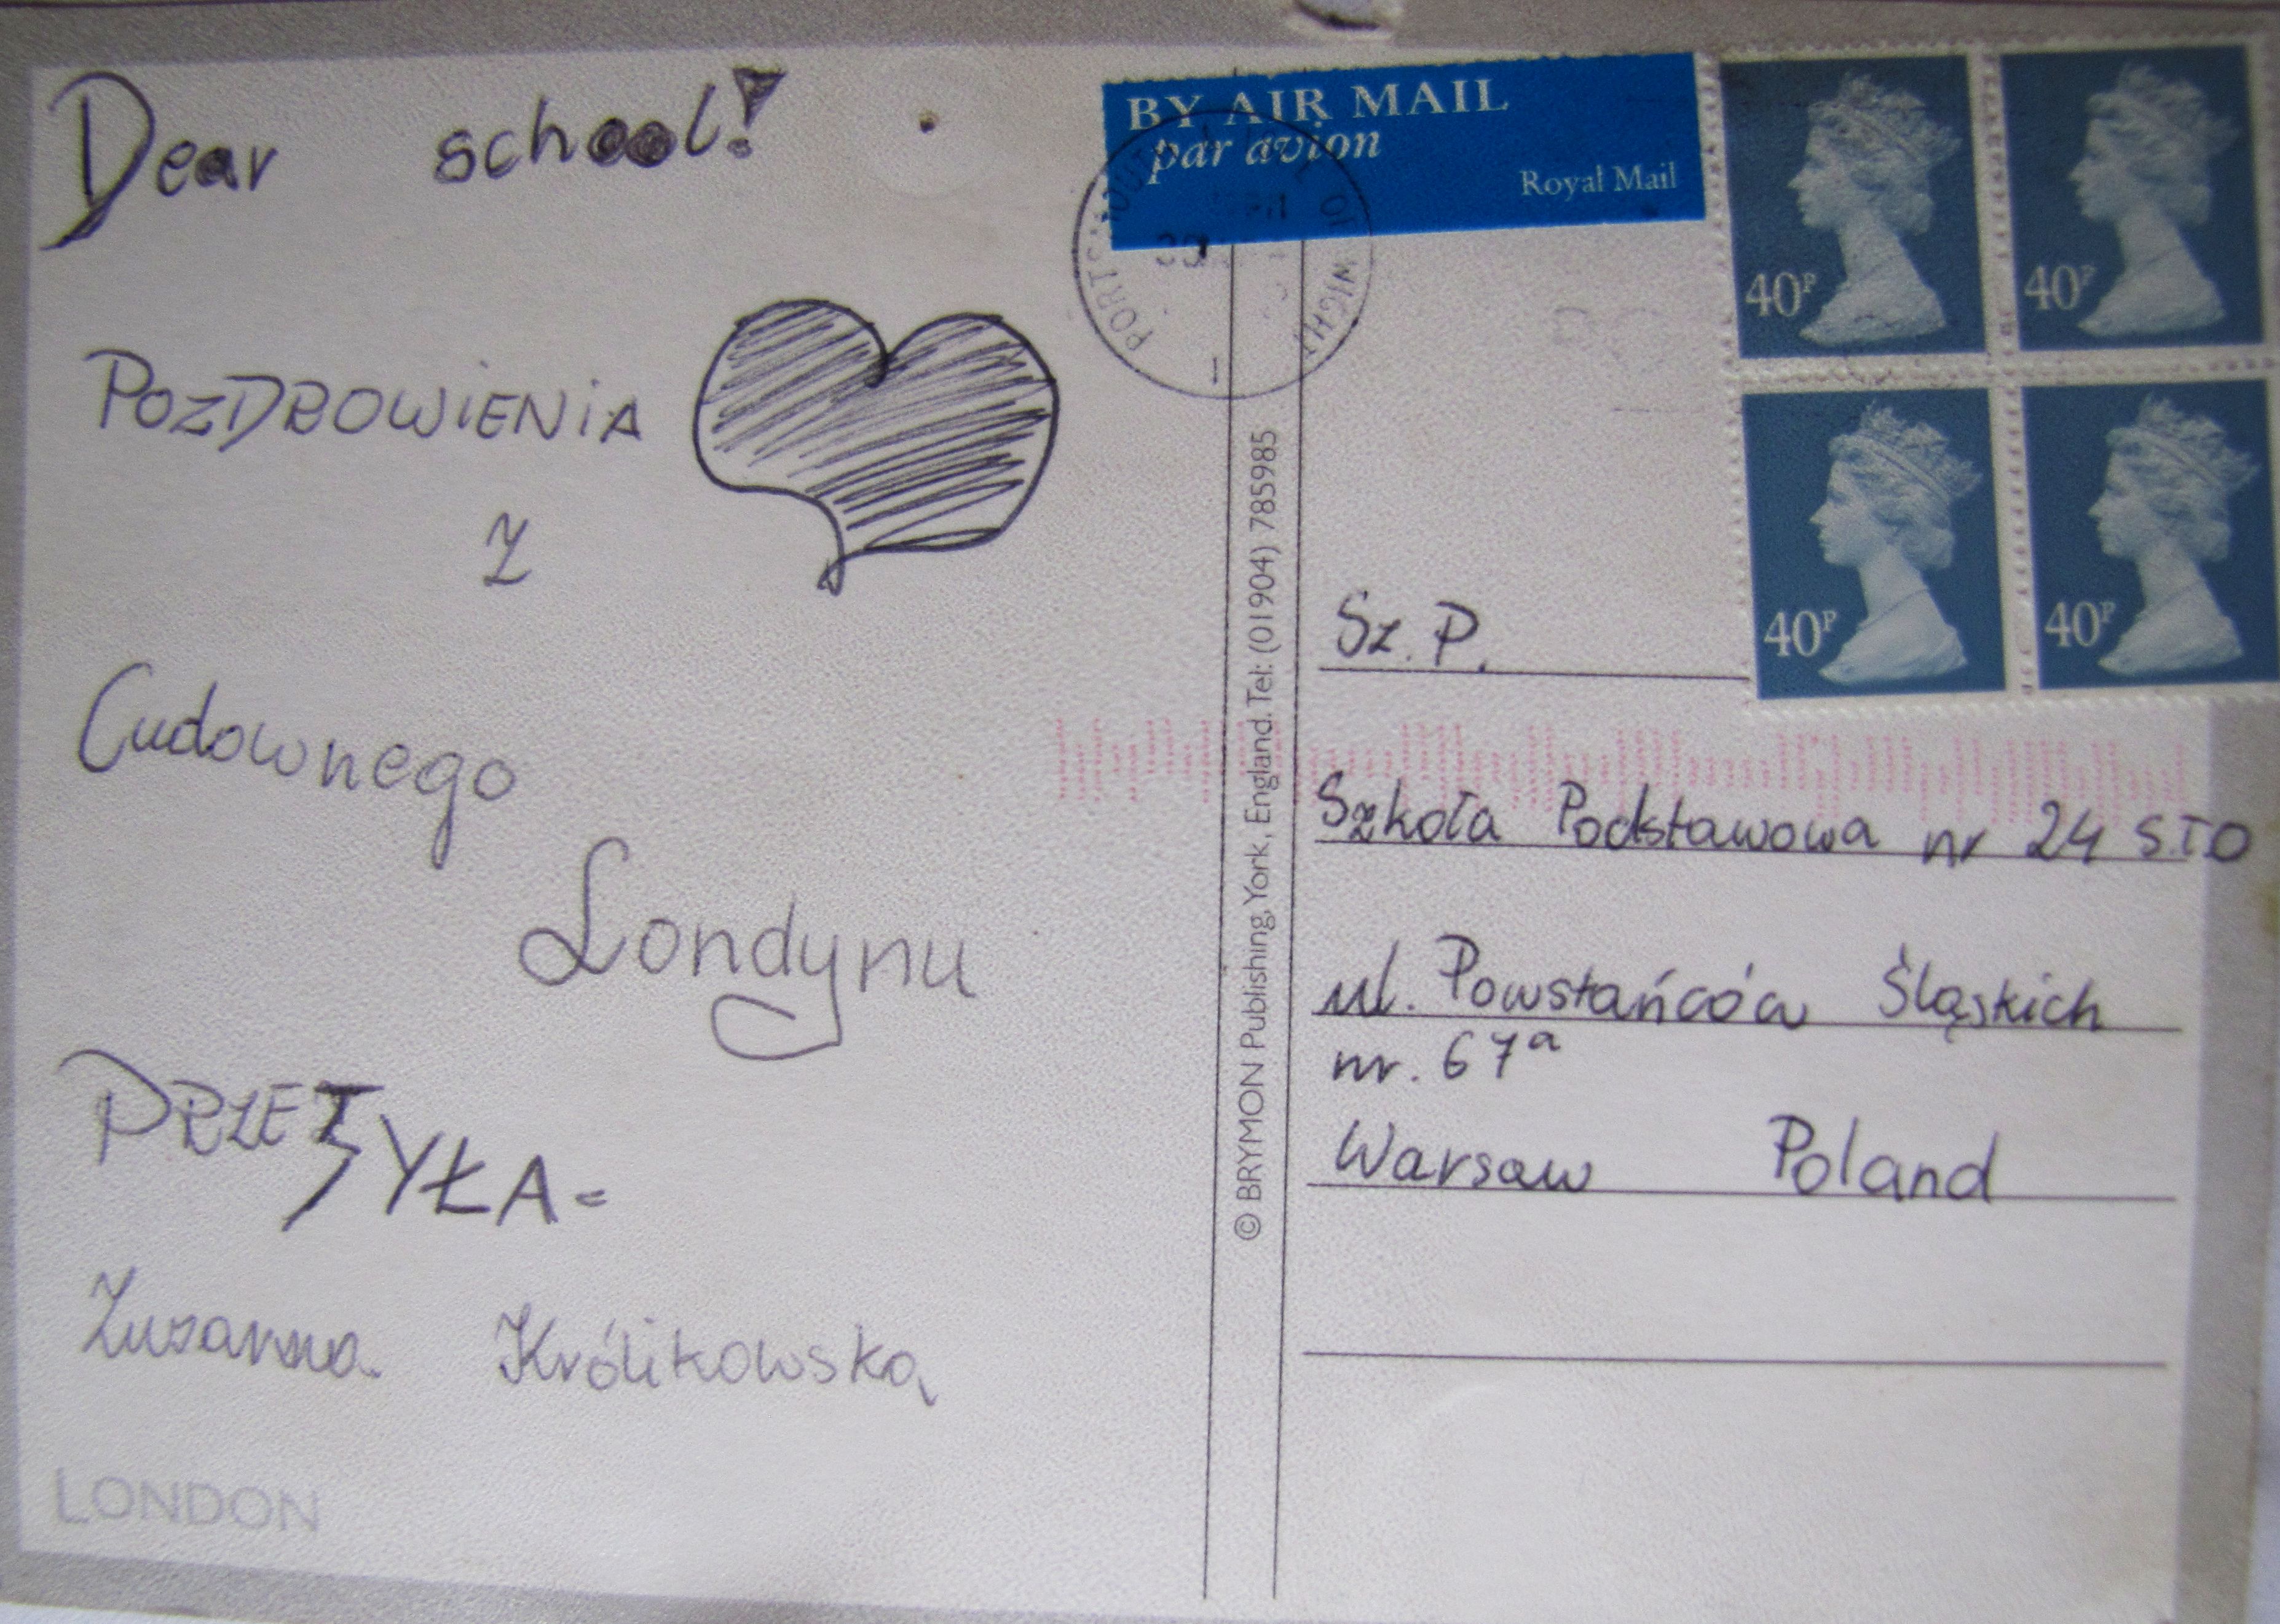 Dear school!
POZDROWIENIA
Z
Cudownego
Londynu
PRZESYŁA-
Zuzanna Królikowska
LONDON
BY AIR MAIL
par avion
Royal Mail
PORTSMOUTH OF WIGHT
© BRYMON Publishing, York, England. Tel: (01904) 785985
40P
40P
40P
40P
Sz. P.
Szkoła Podstawowa nr 24 STO
ul. Powstańców Śląskich
nr. 67a
Warsaw Poland